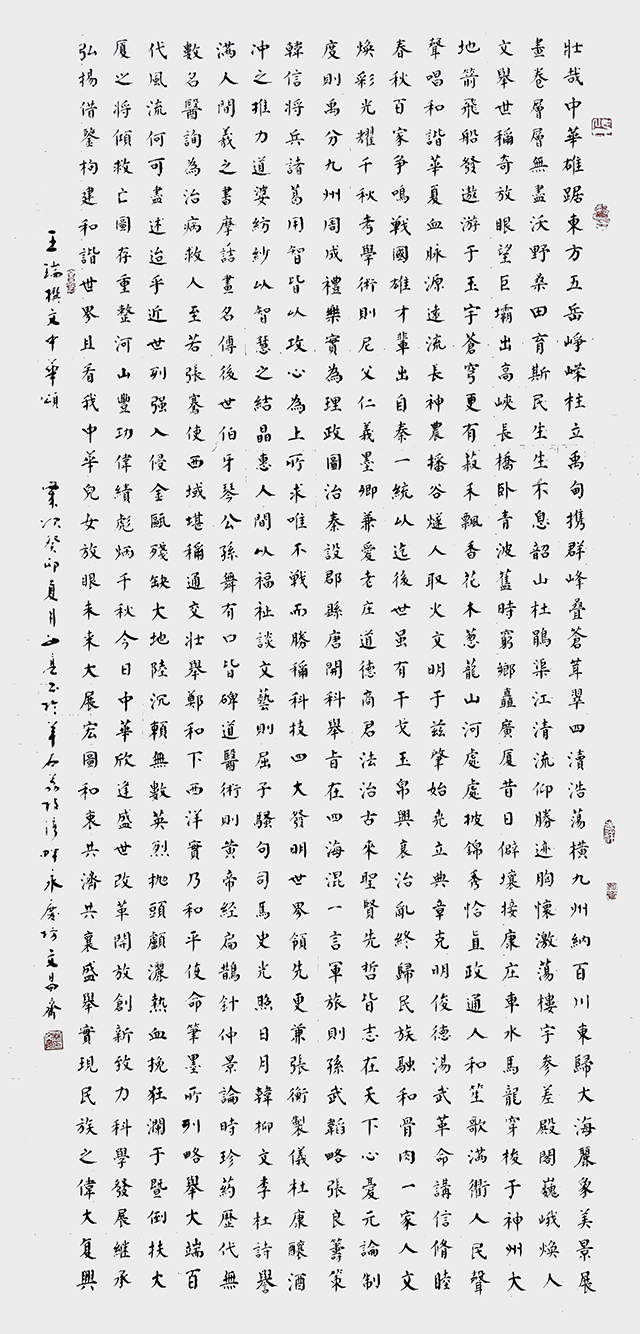 壯哉中華雄踞東方五岳崢嶸柱立禹甸攜群峰疊蒼茸翠四瀆浩蕩橫九州納百川東歸大海麗象美景展
畫卷層層無盡沃野桑田育斯民生生不息韶山杜鵑渠江清流仰勝迹胸懷激蕩樓宇參差殿閣巍峨煥人
文舉世稱奇放眼望巨壩出高峽長橋卧青波舊時窮鄉矗廣厦昔日僻壤接康庄車水馬龍穿梭于神州大
地箭飛船發遨游于玉宇蒼穹更有菽禾飄香花木蔥蘢山河處處披錦秀恰直政通人和笙歌滿衢人民聲
聲唱和諧華夏血脉源遠流長神農播谷燧人取火文明于兹肇始堯立典章克明俊德湯武革命講信脩睦
春秋百家争鳴戰國雄才輩出自秦一統以迄後世虽有干戈玉帛興衰治亂終歸民族融和骨肉一家人文
焕彩光耀千秋考學術則尼父仁義墨卿兼愛老庄道德商君法治古來聖賢先哲皆志在天下心憂元論制
度則禹分九州周成禮樂實為理政圖治秦設郡縣唐開科舉旨在四海混一言軍旅則孫武韜略張良籌策
韓信將兵諸葛用智皆以攻心為上所求唯不戰而勝稱科技四大發明世界領先更兼張衡製儀杜康釀酒
冲之推力道婆紡紗以智慧之結晶惠人間以福祉談文藝則屈子騷句司馬史光照日月韓柳文李杜詩譽
滿人間羲之書摩詰畫名傳後世伯牙琴公孫舞有口皆碑道醫術則黄帝經扁鵲針仲景論時珍葯歷代無
數名醫詢為治病救人至若張騫使西域堪稱通交壯舉鄭和下西洋實乃和平使命筆墨所列略舉大端百
代風流何可盡述迨乎近世列强入侵金甌殘缺大地陸沉賴無數英烈抛頭顱灑熱血挽狂瀾于暨倒扶大
厦之將傾救亡圖存重整河山豐功偉績彪炳千秋今日中華欣逢盛世改革開放創新致力科學發展繼承
弘揚借鑒构建和諧世界且看我中華兒女放眼未来大展宏圖和衷共濟共襄盛舉實現民族之偉大复興
王瑞撰文中華頌 歲次癸卯夏月 永慶坊文昌齋